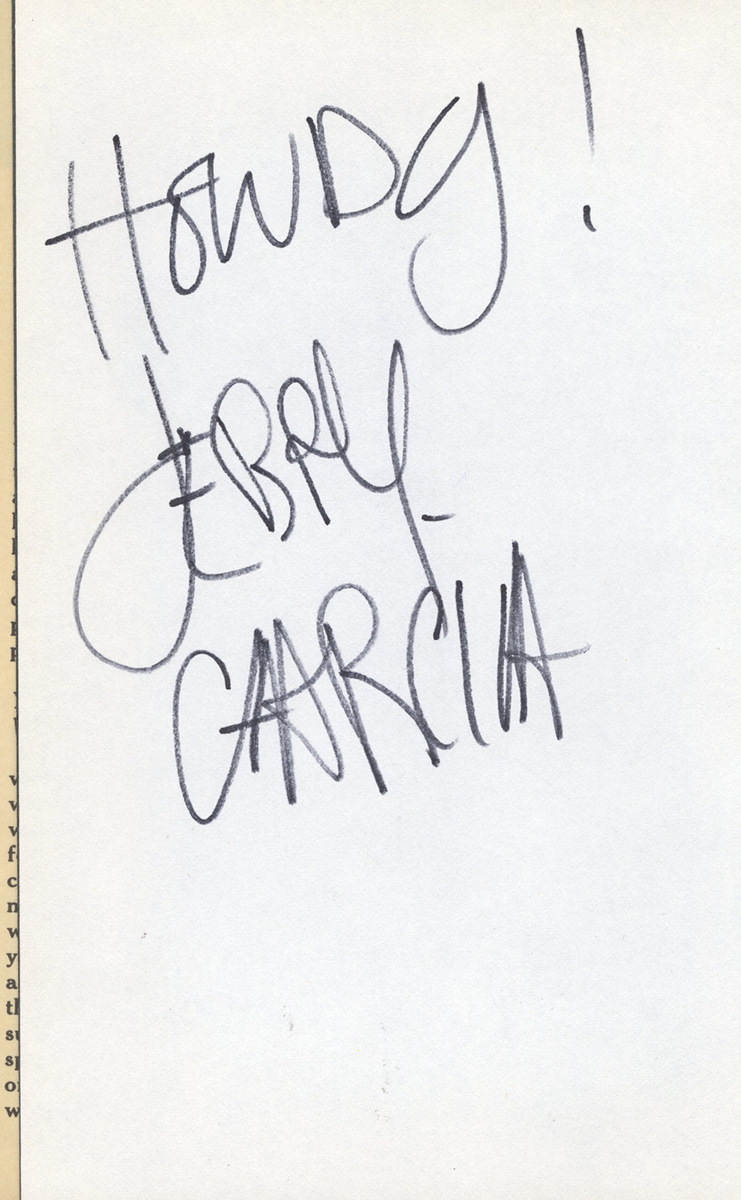 HOWDY!
JERRY -
GARCIA